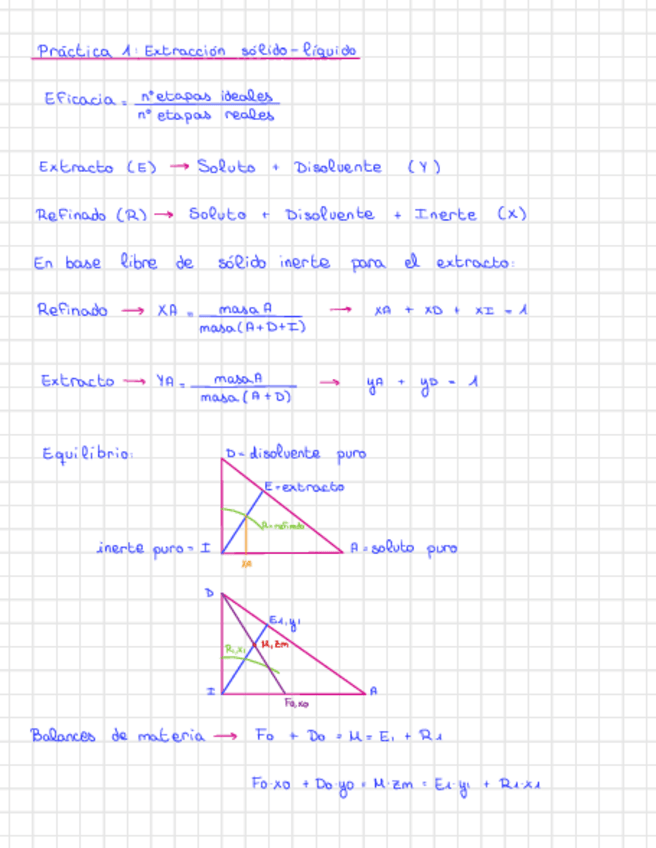 Práctica 1: Extracción sólido-líquido
Eficacia = nº etapas ideales / nº etapas reales
Extracto (E) → Soluto + Disolvente (Y)
Refinado (R) → Soluto + Disolvente + Inerte (X)
En base libre de sólido inerte para el extracto:
Refinado → XA = masa A / masa (A+D+I) → xA + xD + xI = 1
Extracto → YA = masa A / masa (A+D) → yA + yD = 1
Equilibrio:
D = disolvente puro
E = extracto
R = refinado
inerte puro = I
A = soluto puro
XA
D
E1, y1
R1, x1
M, zm
I
A
F0, x0
Balances de materia → F0 + D0 = M = E1 + R1
F0·x0 + D0·y0 = M·zm = E1·y1 + R1·x1